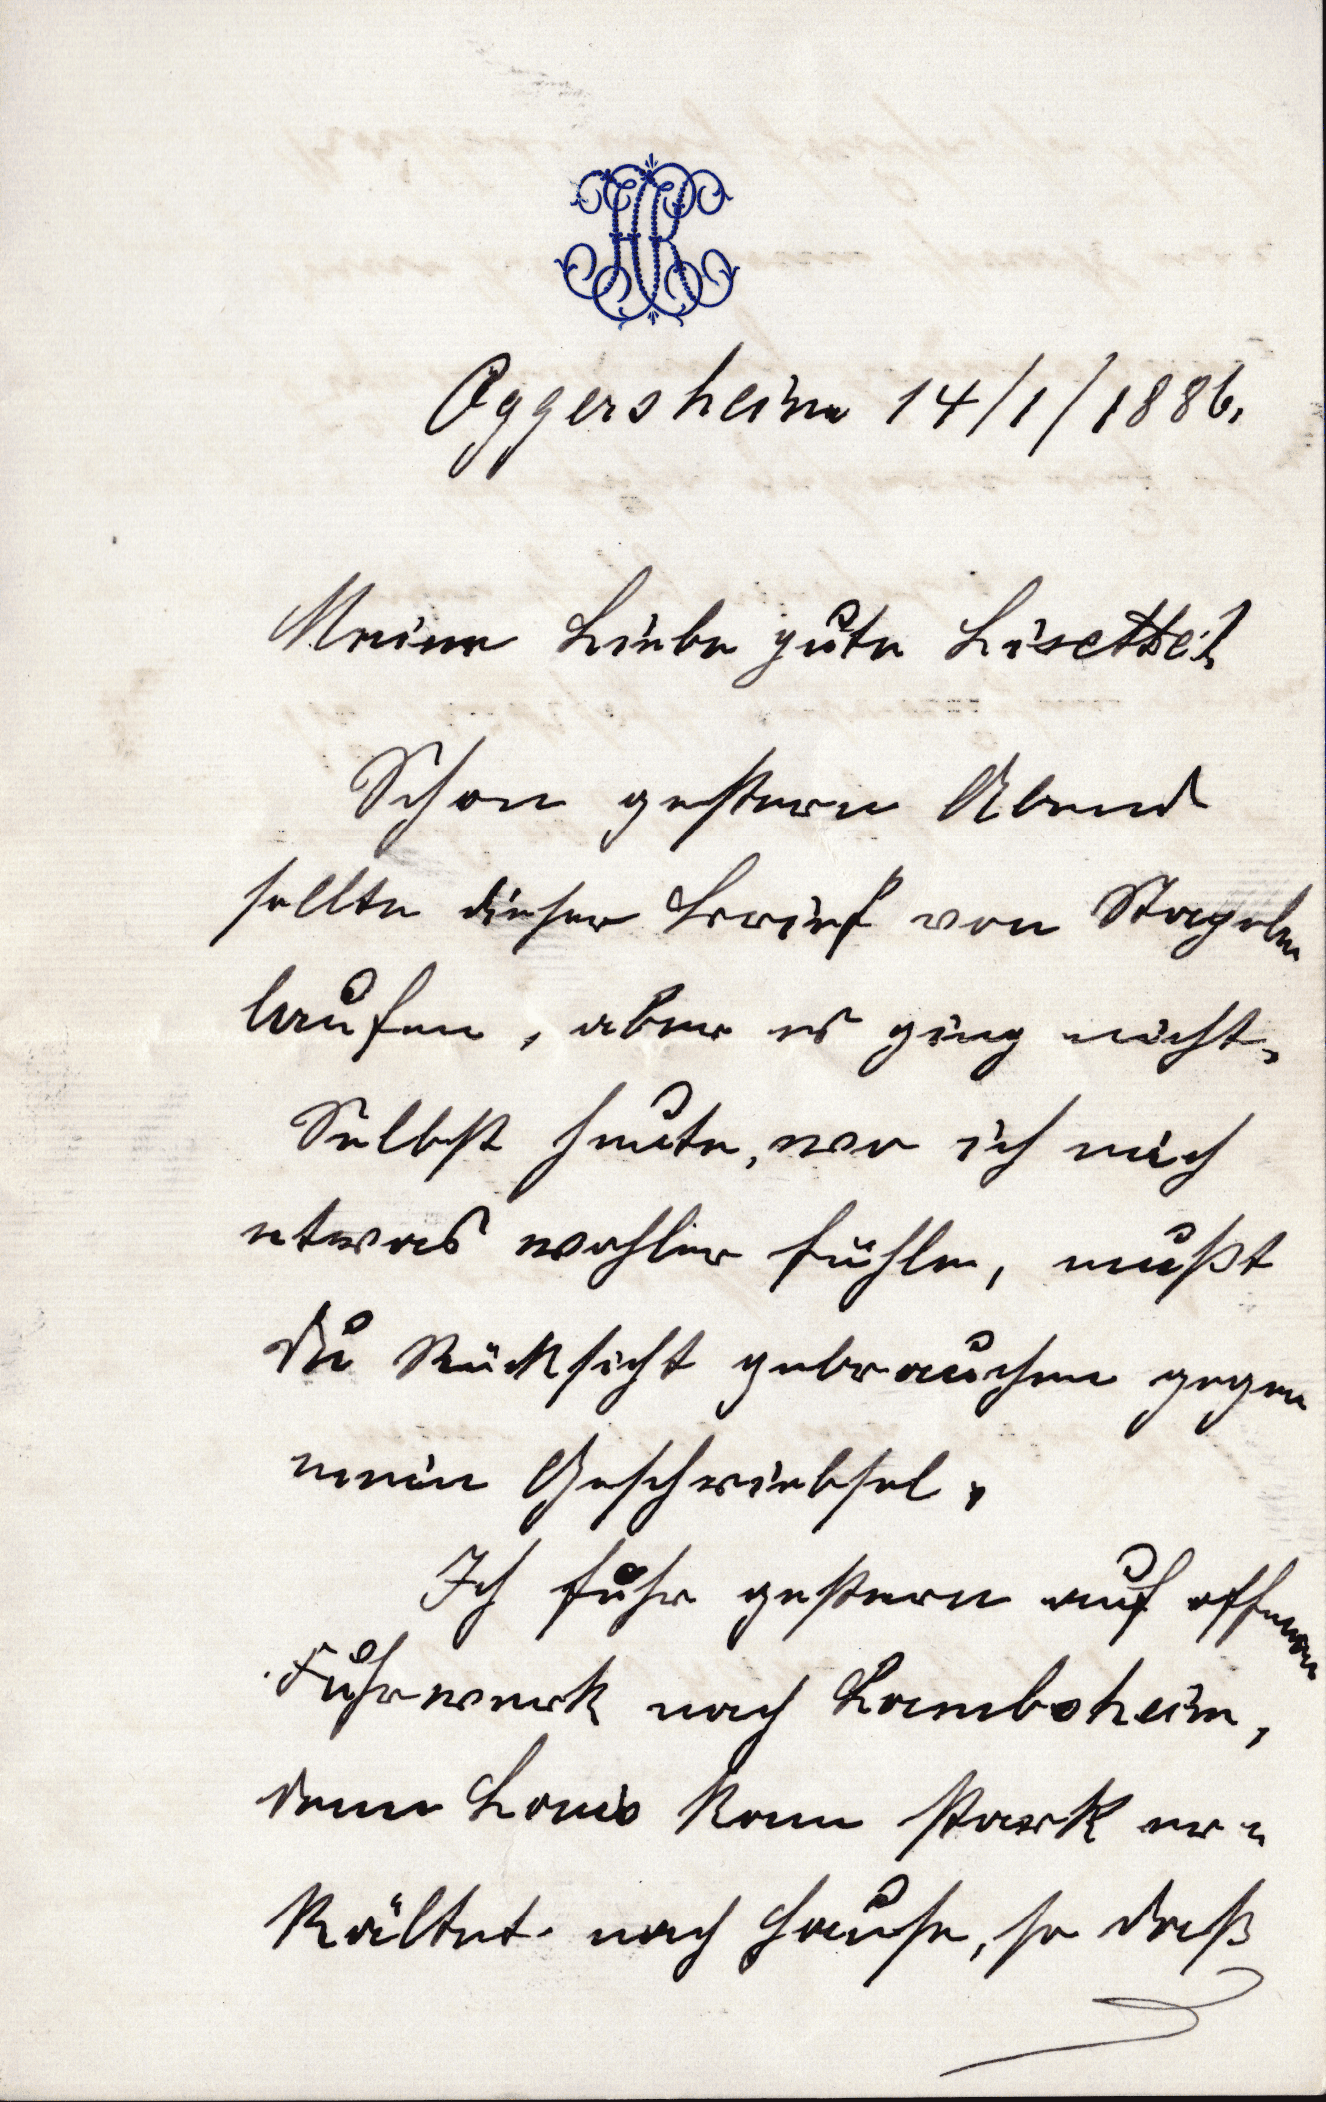 HR
Oggersheim 14/1/1886.
Meine liebe gute Lisette!
Schon gestern Abend
sollte dieser Brief von Stapel
laufen, aber es ging nicht.
Selbst heute, wo ich mich
etwas wohler fühle, mußt
Du Rücksicht gebrauchen gegen
mein Geschriebsel.
Ich fuhr gestern auf offenem
Fuhrwerk nach Lambsheim,
denn Louis kam stark er=
kältet nach Hause, so daß